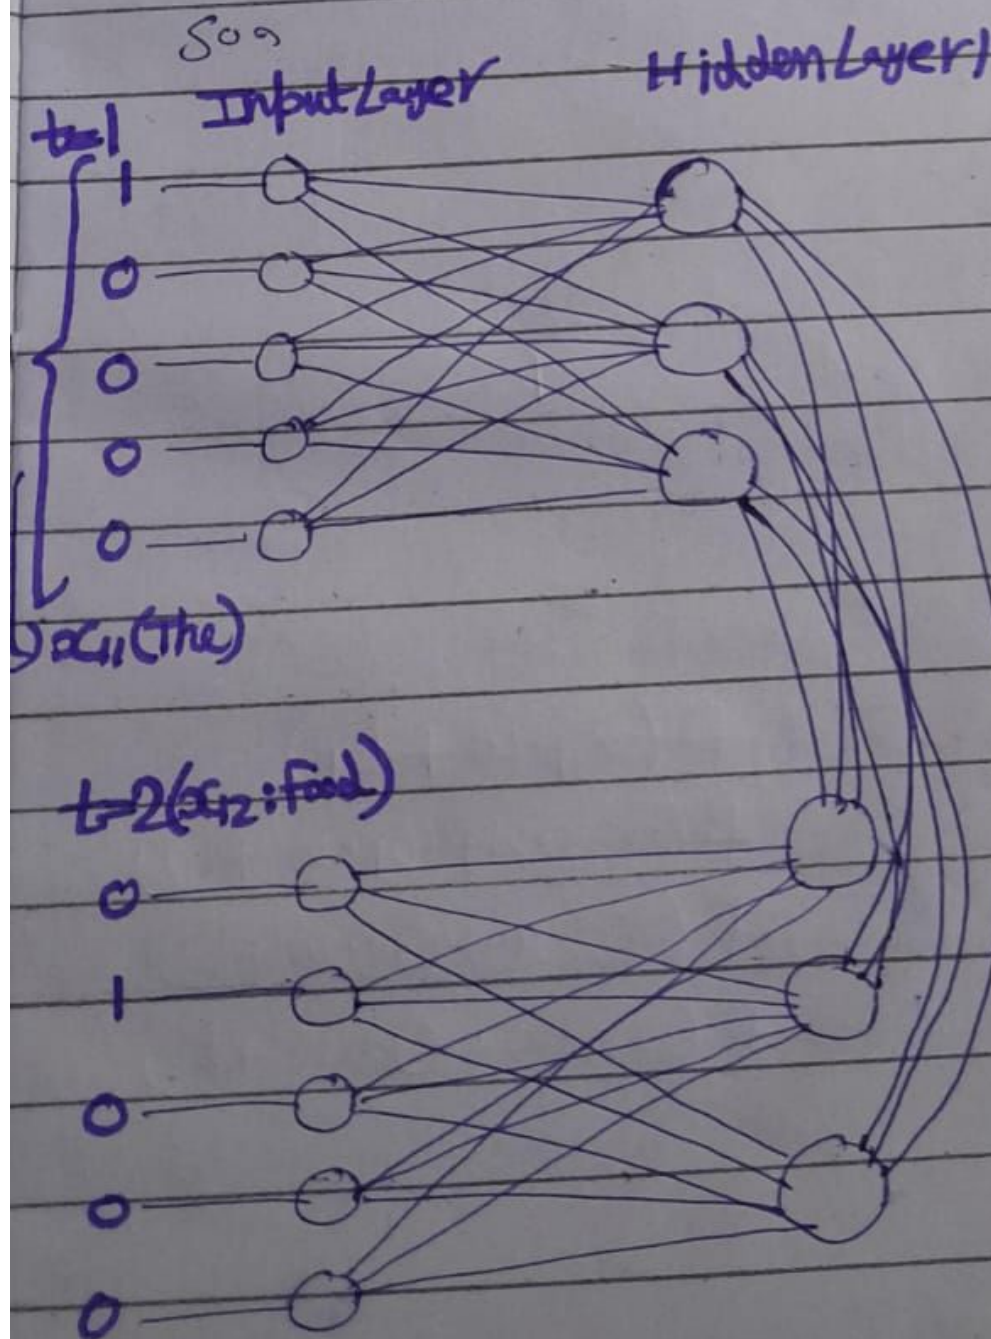 Input Layer
Hidden Layer 1
t=1
1
0
0
0
0
x11 (The)
t=2 (x12: Food)
0
1
0
0
0